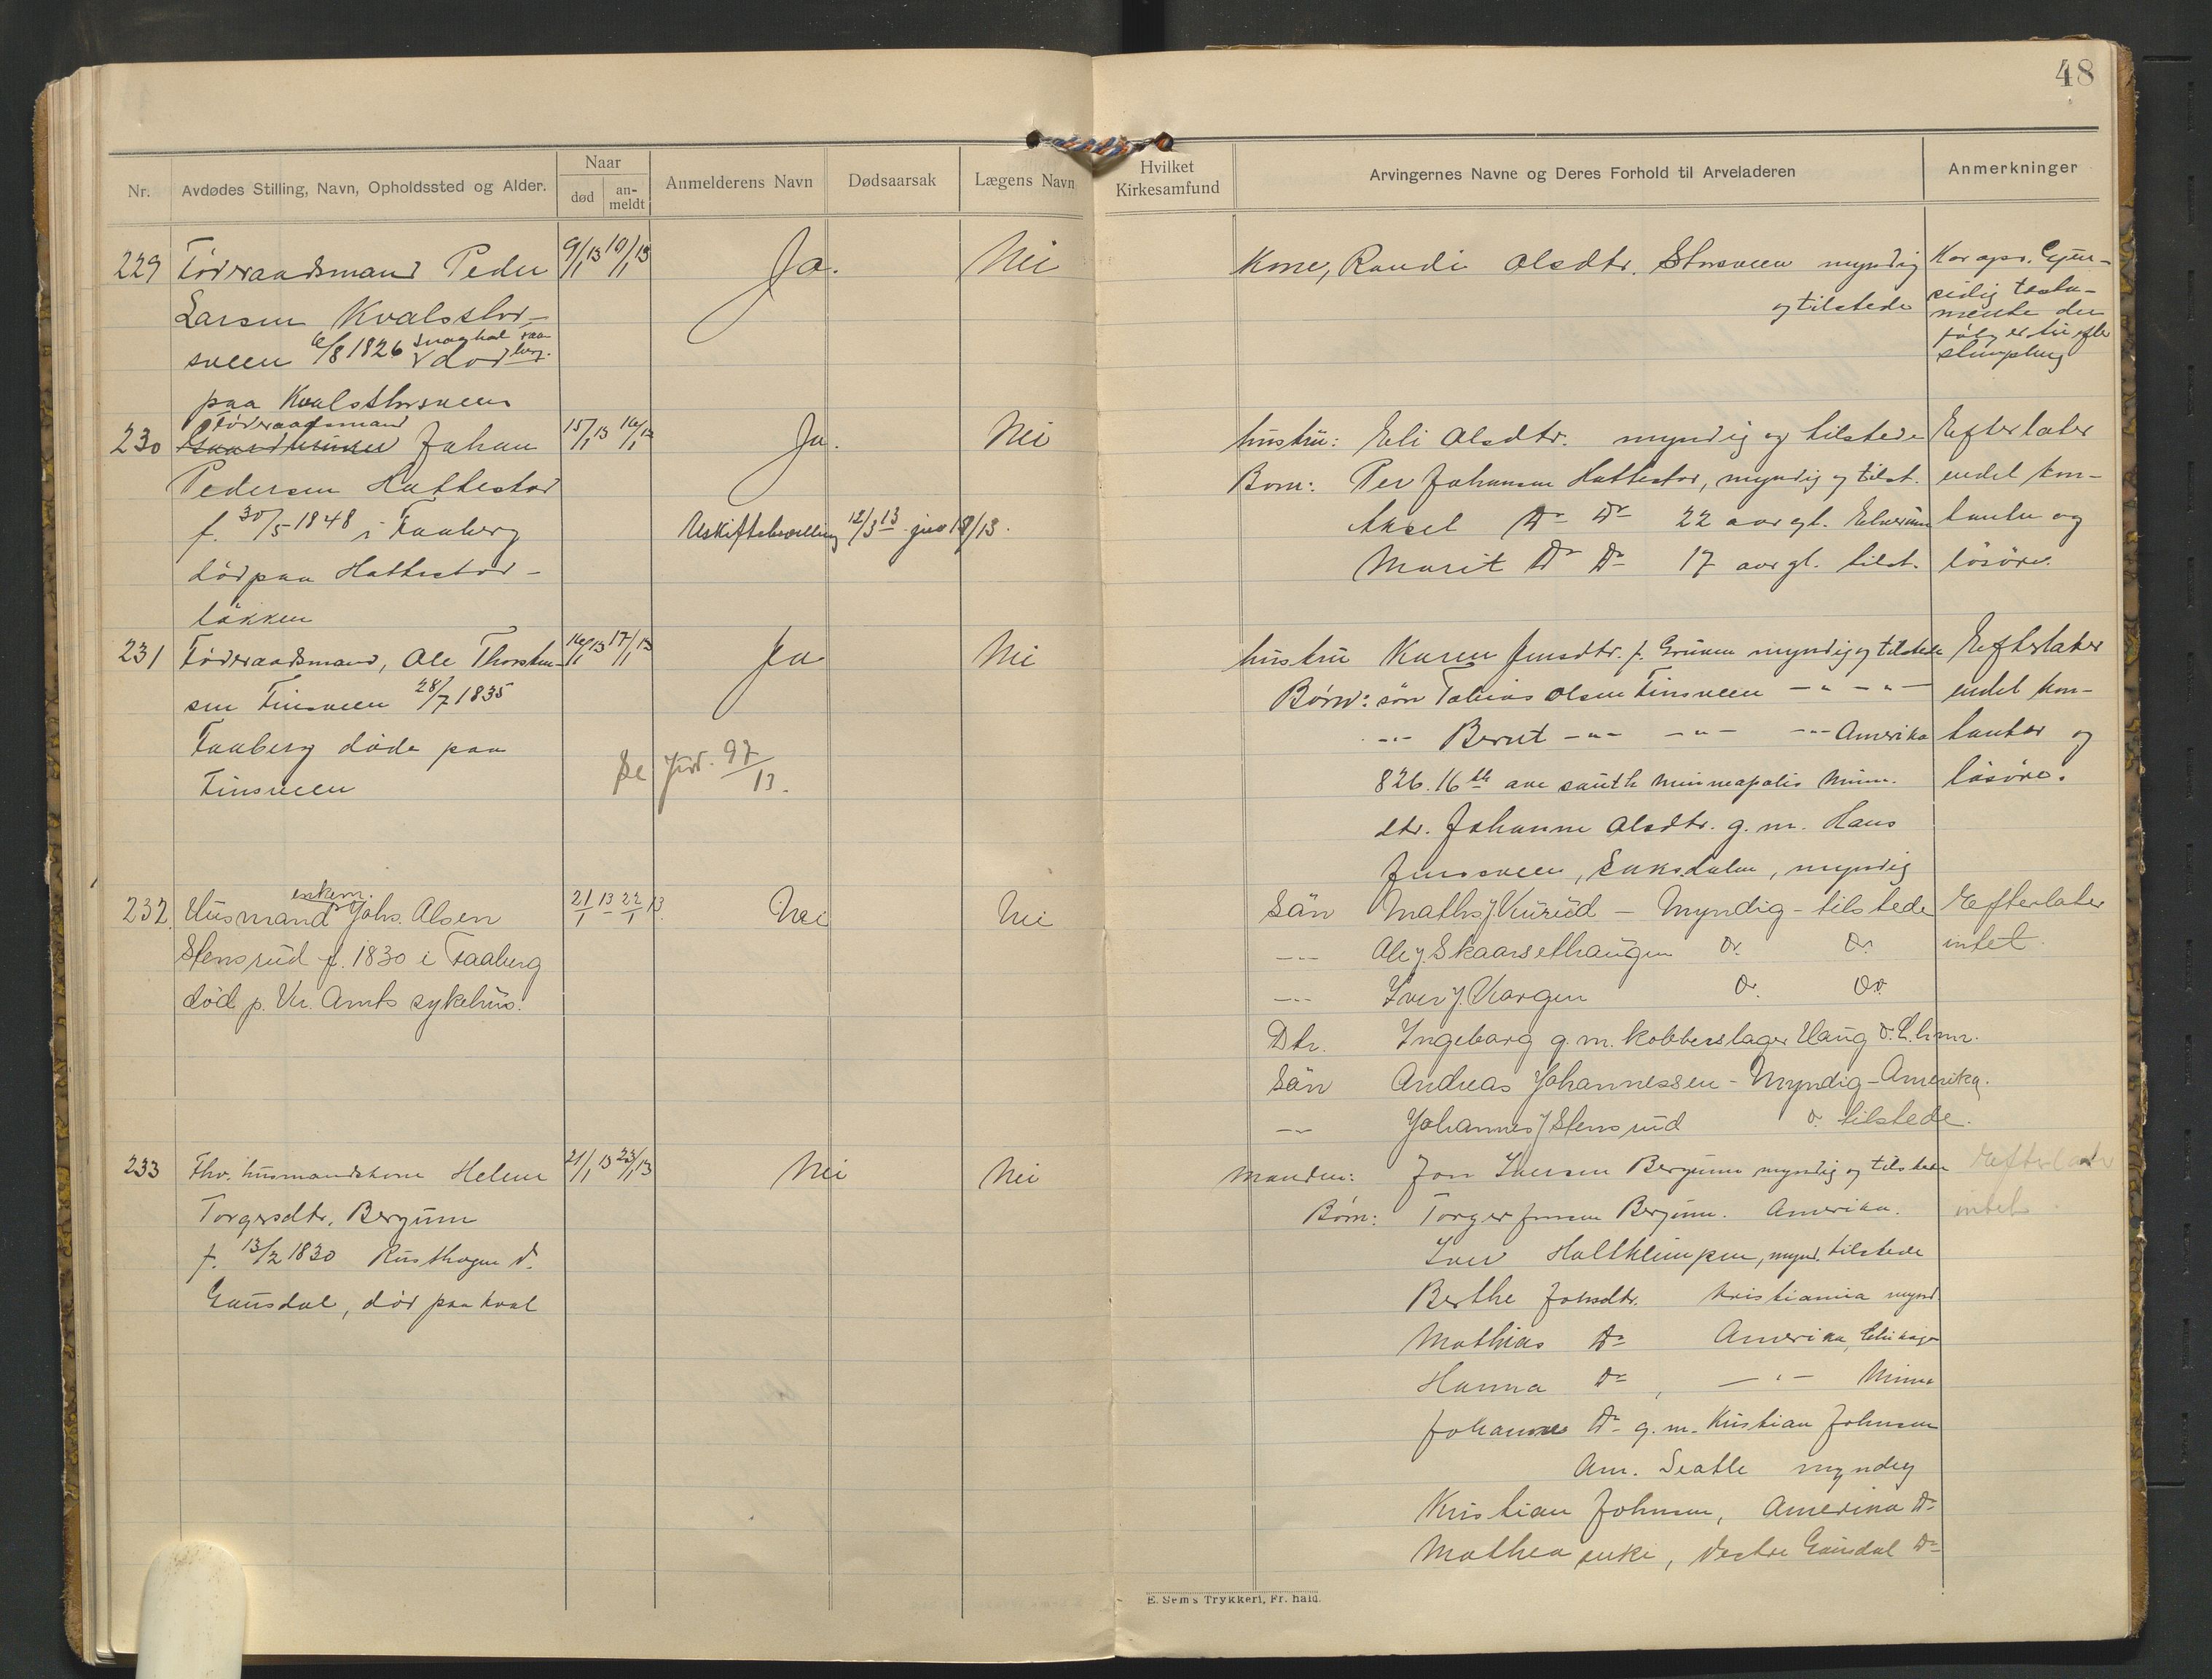 48
Nr.
Avdødes Stilling, Navn, Opholdssted og Alder.
Naar
død
an-
meldt
Anmelderens Navn
Dødsaarsak
Lægens Navn
Hvilket
Kirkesamfund
Arvingernes Navne og Deres Forhold til Arveladeren
Anmerkninger
229 Føderaadsmand Peder 9/1 13 10/1 13 Ja. Nei
Larsen Kvalsstor-
sveen 6/8 1826
paa Kvalstorsveen
Kone, Randi Olsdtr. Storsveen myndig
og tilstede
Føderaadsmand
230 Johan 15/1 13 16/1 13 Ja. Nei
Pedersen Hattestad
f. 30/5 1848 i Faaberg
død paa Hattestad-
løkken
Uskiftebevilling 12/3 13
hustru: Eli Olsdtr. myndig og tilstede
Born: Per Johansen Hattestad, myndig og tilst.
Aksel Do Do 22 aar gl. Elverum
Marit Do Do 17 aar gl. tilst.
Efterlater
endel kon-
tanter og
løsøre.
231 Føderaadsmand, Ole Thorsten- 16/1 13 17/1 13 Ja Nei
sen Finsveen 28/7 1835
Faaberg døde paa
Finsveen
Se Jnr. 97/13.
hustru Karen Jensdtr. f. Gruven myndig og tilstede
Børn: søn Tobias Olsen Finsveen -"- -"-
-"- Bernt -"- -"- -"- Amerika
826. 16th ave south Minneapolis Minn.
dtr. Johanne Olsdtr. g. m. Hans
Jenssveen, Saksdalen, myndig
Efterlater
endel kon-
tanter og
løsøre.
enkem.
232. Husmand Johs. Olsen 21/1 13 22/1 13. Nei Nei
Stensrud f. 1830 i Faaberg
død p. Kr. Amts sykehus.
Søn Maths J Kurud - Myndig - tilstede
-"- Ole J. Skaarsethaugen Do. Do.
-"- Iver J. Korgen Do. Do.
Dtr. Ingeborg g. m. kobberslager Haug D. L.hmr.
Søn Andreas Johannessen - Myndig - Amerika.
-"- Johannes J Stensrud Do tilstede.
Efterlater
intet.
233 Fhv. husmandskone Helene 21/1 13 23/1 13 Nei Nei
Torgersdtr. Bergum
f. 13/2 1830 Rusthagen V.
Gausdal, død paa Kval
Manden: Jon Iversen Bergum myndig og tilstede
Børn: Torger Jonsen Bergum. Amerika.
Iver Holtklimpen, mynd. tilstede
Berthe Johsdtr. Kristiania mynd.
Mathias Do Amerika,
Hanna Do, -"- Minne
Johanne Do g. m. Kristian Johnsen
Am. Seatle myndig
Kristian Johnsen, Amerika Do
Mathea enke, Vestre Gausdal Do
Efterlater
intet
E. Sem's Trykkeri, Fr. hald.